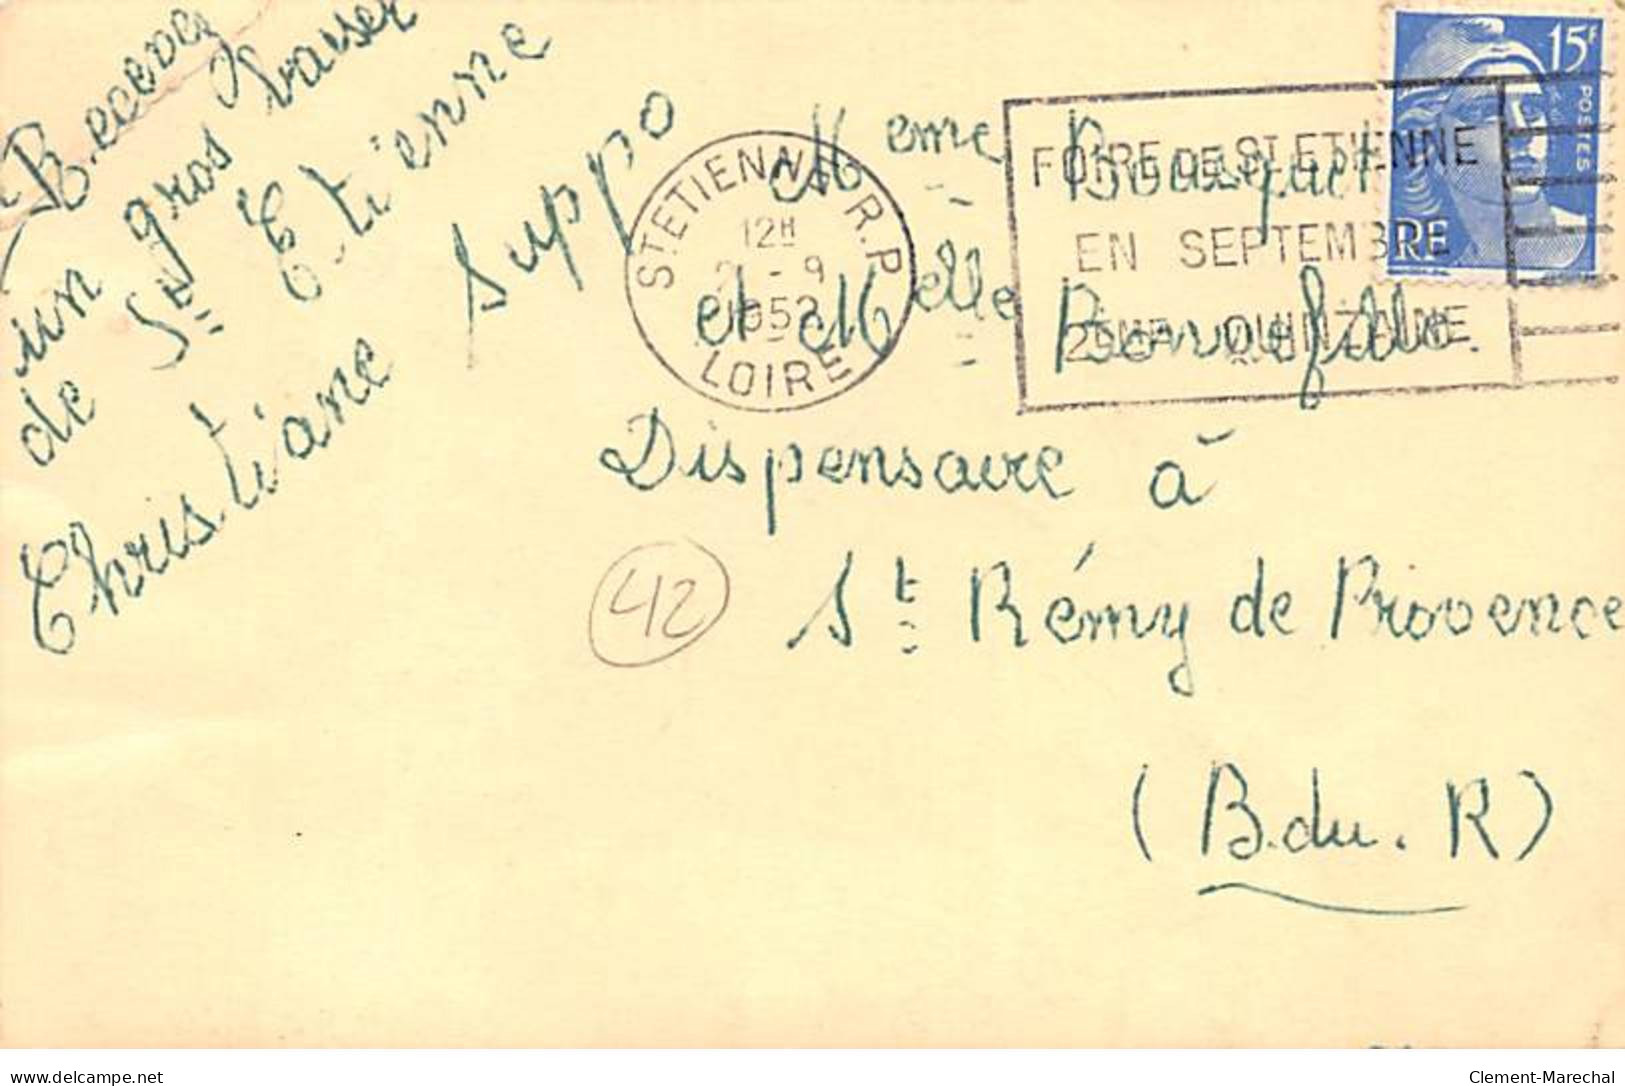 Recevez
un gros baiser
de St Etienne
Christiane Suppo
15F
POSTES
RF
ST ETIENNE R.P.
12H
2 - 9
1952
LOIRE
FOIRE DE ST ETIENNE
EN SEPTEMBRE
2EME QUINZAINE
Meme Bousquet
et Melle Bonnefille.
Dispensaire à
St Rémy de Provence
(B. du. R)
42
delcampe.net
Clement-Marechal